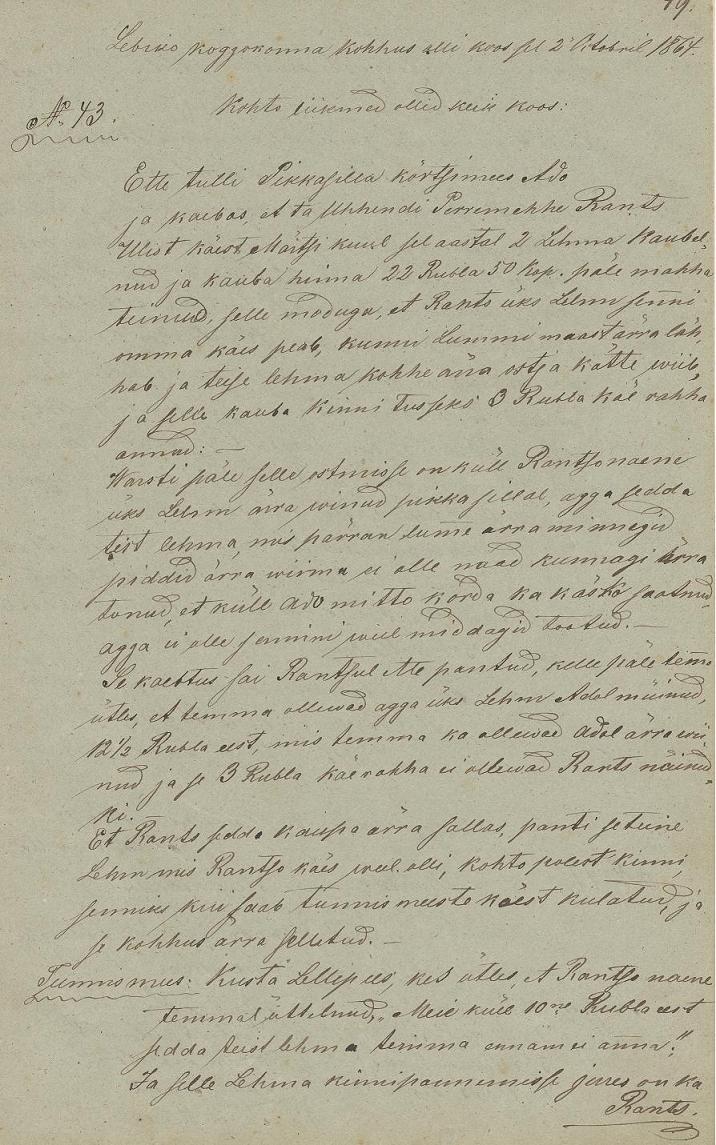 19.
Lebiko koggokonna kohhus olli koos sel 2 Octobril 1864.
Kohto liikmed ollid keik koos:
No 43.
Ette tulli Pikkasilla körtsimees Ado
ja kaebas, et ta Uhhendi Perremehhe Rants
käest, Märtsi kuul sel aastal 2 Lehma Kaubel-
nud ja kauba hinna 22 Rubla 50 Kop. päle mahha
teinud, selle moduga, et Rants üks Lehm senni
omma käes peab, kunni Lummi maast ärra läh-
hab ja teise lehma kohhe ärra ostja kätte wiib,
ja selle kauba kinnitusseks 3 Rubla käe rahha
annud: —
Warsti päle selle ostmisse on küll Rantso naene
üks Lehm ärra winud pikkasillal, agga sedda
teist lehma, mis pärran lumme ärraminnegid
piddid ärra wiima ei olle naad kunnagi ärra
tonud, et küll Ado mitto korda ka käsko saatnud,
agga ei olle sennini weel middagid tootud. —
Se kaebtus sai Rantsul ette pantud, kelle päle temma
ütles, et temma ollewad agga üks Lehm Adol müinud,
12 1/2 Rubla eest, mis temma ka ollewad Adol ärra wii-
nud ja se 3 Rubla käerahha ei ollewad Rants näinud-
ki. —
Et Rants sedda kaupa ärra sallas, panti se teine
Lehm mis Rantso käes weel olli, kohto polest kinni,
senniks kui saab tunnismeeste käest kulatud, ja
se kohhus ärra selletud. —
Tunnismees: Kusta Lellep ees, kes ütles, et Rantso naene
temmal üttelnud, „Meie küll 10ne Rubla eest
sedda teist lehma temma ennam ei anna";
Ja selle Lehma kinnipannemisse jures on ka
Rants.